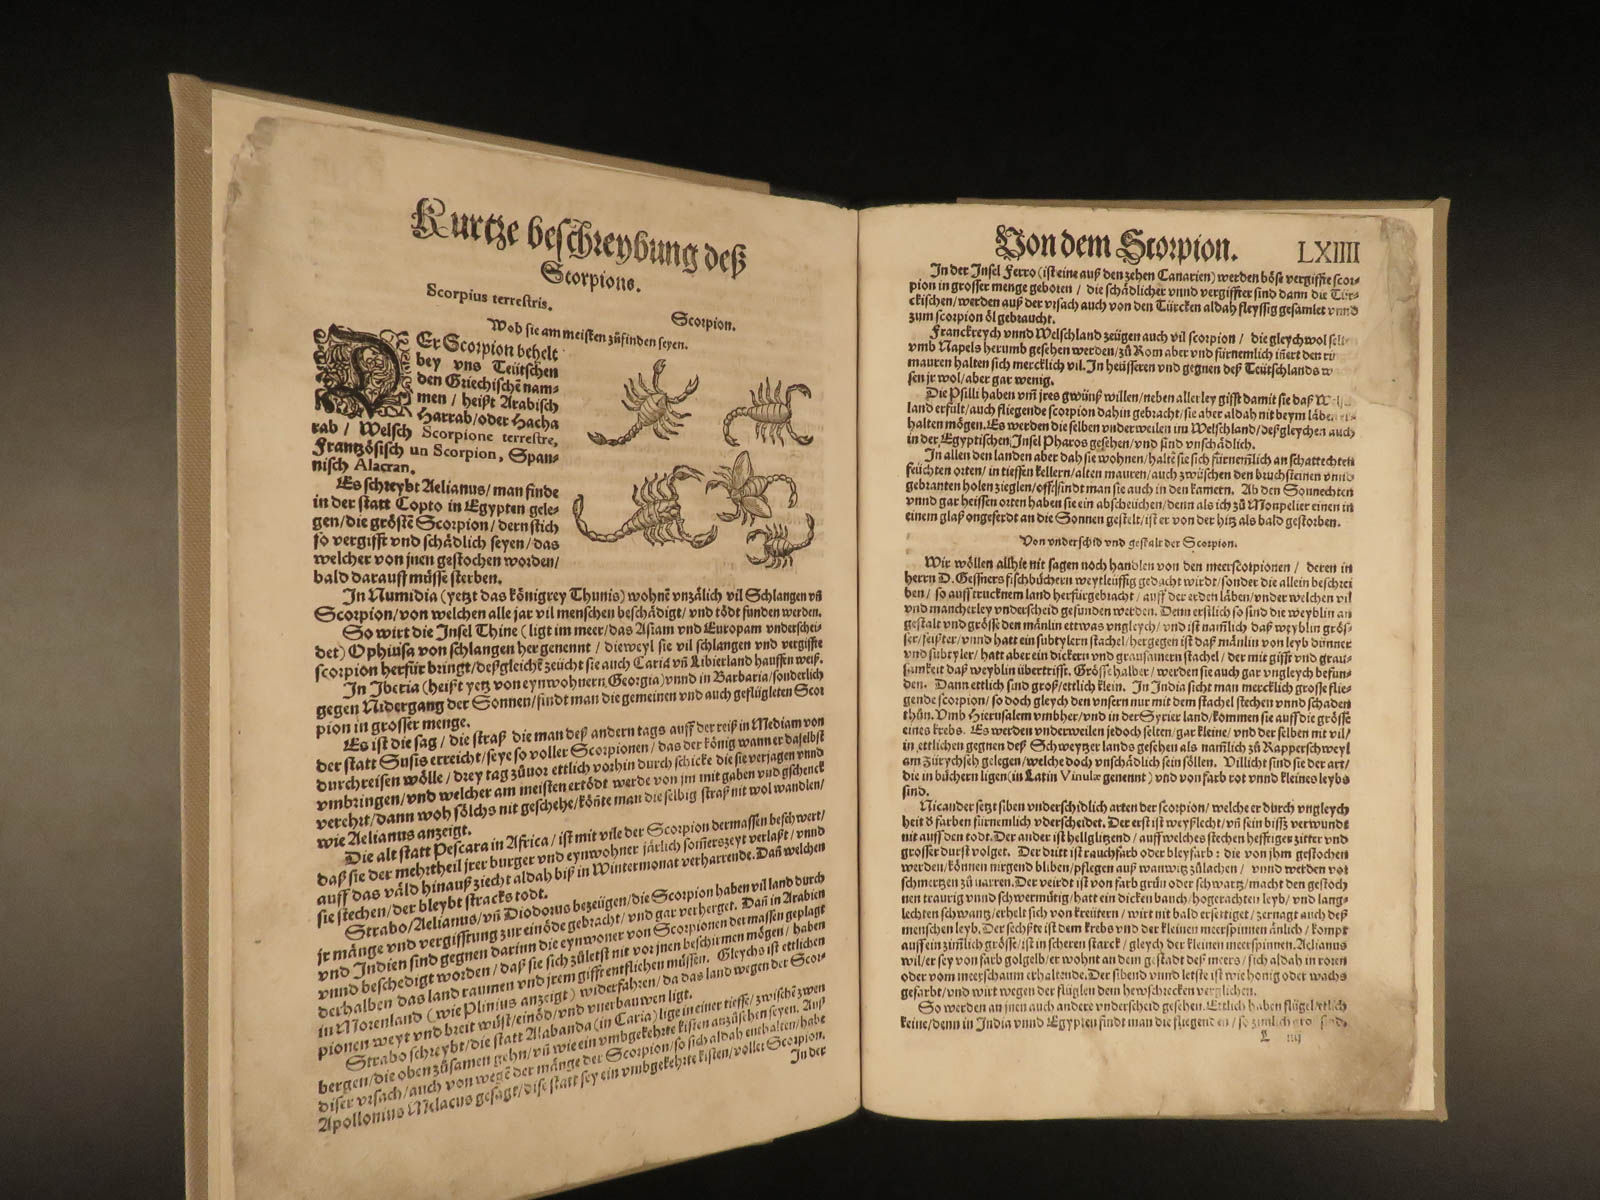 Kurtze beschreybung deß
Scorpions.
Scorpius terrestris.
Scorpion.
Woh sie am meisten zůfinden seyen.
DEr Scorpion behelt
bey vns Teütschen
den Griechischē nam-
men / heißt Arabisch
Harrab/oder Hacha
rab / Welsch Scorpione terrestre,
Frantzösisch un Scorpion, Span-
nisch Alacran.
Es schreybt Aelianus/ man finde
in der statt Copto in Egypten gele-
gen/die grőstē Scorpion/ dern stich
so vergifft vnd schådlich seyen/das
welcher von jnen gestochen worden/
bald darauff můsse sterben.
In Numidia (yetzt das kőnigrey Thunis) wohnē vnzålich vil Schlangen vñ
Scorpion/von welchen alle jar vil menschen beschådigt/ vnd tődt funden werden.
So wirt die Insel Thine (ligt im meer/das Asiam vnd Europam vnderschei-
det) Ophiusa von schlangen her genennt / dieweyl sie vil schlangen vnd vergiffte
scorpion herfür bringt/deßgleichē zeücht sie auch Cariā vñ Libierland hauffen weiß.
In Iberia (heißt yetz von eynwohnern Georgia) vnnd in Barbaria/sonderlich
gegen Nidergang der Sonnen/findt man die gemeinen vnd auch geflügleten Scor
pion in grosser menge.
Es ist die sag / die straß die man deß andern tags auff der reiß in Mediam von
der statt Susis erreicht/seye so voller Scorpionen / das der kőnig wann er daselbst
durchreisen wőlle / drey tag zůuor ettlich vorhin durch schicke die sie verjagen vnnd
vmbringen/vnd welcher am meisten ertődt werde von jm mit gaben vnd gschenck
verehrt/dann woh sőlchs nit geschehe/kőnte man die selbig straß nit wol wandlen/
wie Aelianus anzeigt.
Die alt statt Pescara in Africa / ist mit vile der Scorpion dermassen beschwert/
daß sie der mehrtheil jrer burger vnd eynwohner jårlich som̄erszeyt verlaßt / vnnd
auff das våld hinauß ziecht aldah biß in Wintermonat verharrende. Dañ welchen
sie stechen/der bleybt stracks todt.
Strabo/Aelianus/vñ Diodorus bezeügen/die Scorpion haben vil land durch
jr månge vnd vergifftung zur einőde gebracht/ vnd gar verherget. Dañ in Arabien
vnd Indien sind gegnen darinn die eynwoner von Scorpionen der massen geplagt
vnnd beschedigt worden/ daß sie sich zůletst nit vor jnen beschirmen mőgen / haben
derhalben das land raumen vnd jrem gifft entfliehen müssen. Gleychs ist ettlichen
in Morenland (wie Plinius anzeigt) widerfahren/ da das land wegen der Scor-
pionen weyt vnd breit wüst/einőd/vnd vnerbauwen ligt.
Strabo schreybt/die statt Alabanda (in Caria) lige in einer tieffe/ zwischē zwen
bergen/die oben zůsamen gehn/vñ wie ein vmbgekehrte kisten anzůsehen seyen. Auß
diser vrsach/auch von wegē der månge der Scorpion/so sich aldah enthalten/habe
Apollonius Melacus gesagt/dise statt sey ein vmbgekehrte kisten/voller Scorpion.
In der
Von dem Scorpion. LXIIII
In der Insel Ferro (ist eine auß den zehen Canarien) werden bőse vergiffte scor-
pion in grosser menge geboren / die schådlicher vnnd vergiffter sind dann die Tür-
ckischen/werden auß der vrsach auch von den Türcken aldah fleyssig gesamlet vnnd
zum scorpion ől gebraucht.
Franckreych vnnd Welschland zeügen auch vil scorpion / die gleych wol
vmb Napels herumb gesehen werden/zů Rom aber vnd fürnemlich iñert den
mauren halten sich mercklich vil. In heüsseren vnd gegnen deß Teütschlands
sen jr wol/aber gar wenig.
Die Psilli haben vm̄ jres gwünß willen/neben aller ley gifft damit sie daß
land erfült/auch fliegende scorpion dahin gebracht/sie aber aldah nit beym låbē
halten mőgen. Es werden die selben vnderweilen im Welschland/deßgleychen auch
in der Egyptischen Insel Pharos gesehen/vnd sind vnschådlich.
In allen den landen aber dah sie wohnen/ haltē sie sich fürnem̄lich an schattechten
feüchten orten/ in tieffen kellern/alten mauren/auch zwüschen den bruchsteinen vnnd
gebranten holen zieglen/offt findt man sie auch in den kamern. Ab den Sonnechten
vnnd gar heissen orten haben sie ein abscheüchen/denn als ich zů Monpelier einen in
einem glaß ongeferdt an die Sonnen gestelt/ist er von der hitz als bald gestorben.
Von vnderschid vnd gestalt der Scorpion.
Wir wőllen allhie nit sagen noch handlen von den meerscorpionen / deren in
herrn D. Gessners fischbüchern weytleüffig gedacht wirdt/sonder die allein beschrei
ben / so auff trucknem land herfürgebracht / auff der erden låben/vnder welchen vil
vnd mancherley vnderscheid gefunden werden. Denn erstlich so sind die weyblin an
gestalt vnd grősse den månlin ettwas vngleych/ vnd ist nam̄lich daß weyblin grős-
ser/feißter/vnnd hatt ein subtylern stachel/hergegen ist daß månlin von leyb dünner
vnd subtyler/ hatt aber ein dickern vnd grausamern stachel / der mit gifft vnd grau-
samkeit daß weyblin übertrifft. Grősse halber/ werden sie auch gar vngleych befun-
den. Dann ettlich sind groß/ettlich klein. In India sicht man mercklich grosse flie-
gende scorpion/ so doch gleych den vnsern nur mit dem stachel stechen vnnd schaden
thůn. Vmb Hierusalem vmbher/vnd in der Syrier land/kommen sie auff die grősse
eines krebs. Es werden vnderweilen jedoch selten/gar kleine/ vnd der selben nit vil/
in ettlichen gegnen deß Schweytzer lands gesehen als nam̄lich zů Rapperschweyl
am Zürychseh gelegen/welche doch vnschådlich sein sőllen. Villicht sind sie der art/
die in büchern ligen (in Latin Vinulæ genennt) vnd von farb rot vnnd kleines leybs
sind.
Nicander setzt siben vnderschidlich arten der scorpion/ welche er durch vngleych
heit d farben fürnemlich vderscheidet. Der erst ist weyßlecht/ vñ sein bissz verwundt
nit auff den todt. Der ander ist hellglitzend/ auff welches stechen hefftiger zitter vnd
grosser durst volget. Der dritt ist rauchfarb oder bleyfarb: die von jhm gestochen
werden/kőnnen nirgend bliben/pflegen auß wanwitz zůlachen / vnnd werden vor
schmertzen zů narren. Der veirdt ist von farb grůn oder schwartz/macht den gestoch
nen traurig vnnd schwermütig/hatt ein dicken bauch/hogerachten leyb/ vnd lang-
lechten schwantz/erhelt sich von kreütern / wirt nit bald ersettiget / zernagt auch deß
menschen leyb. Der sechßte ist dem krebs vnd der kleinen meerspinnen ånlich / kompt
auff ein zim̄lich grősse/ist in scheren starck / gleych der kleinen meerspinnen. Aelianus
wil/er sey von farb golgelb/er wohnt an dem gestadt deß meers / sich aldah in roren
oder vom meerschaum erhaltende. Der sibend vnnd letste ist wie honig oder wachs
gefarbt/vnd wirt wegen der flüglen dem hewschrecken verglichen.
So werden an jnen auch andere vnderscheid gesehen. Ettlich haben flügel/etlich
keine/denn in India vnnd Egypten findt man die fliegenden / so zimlich groß sind.
L iiij